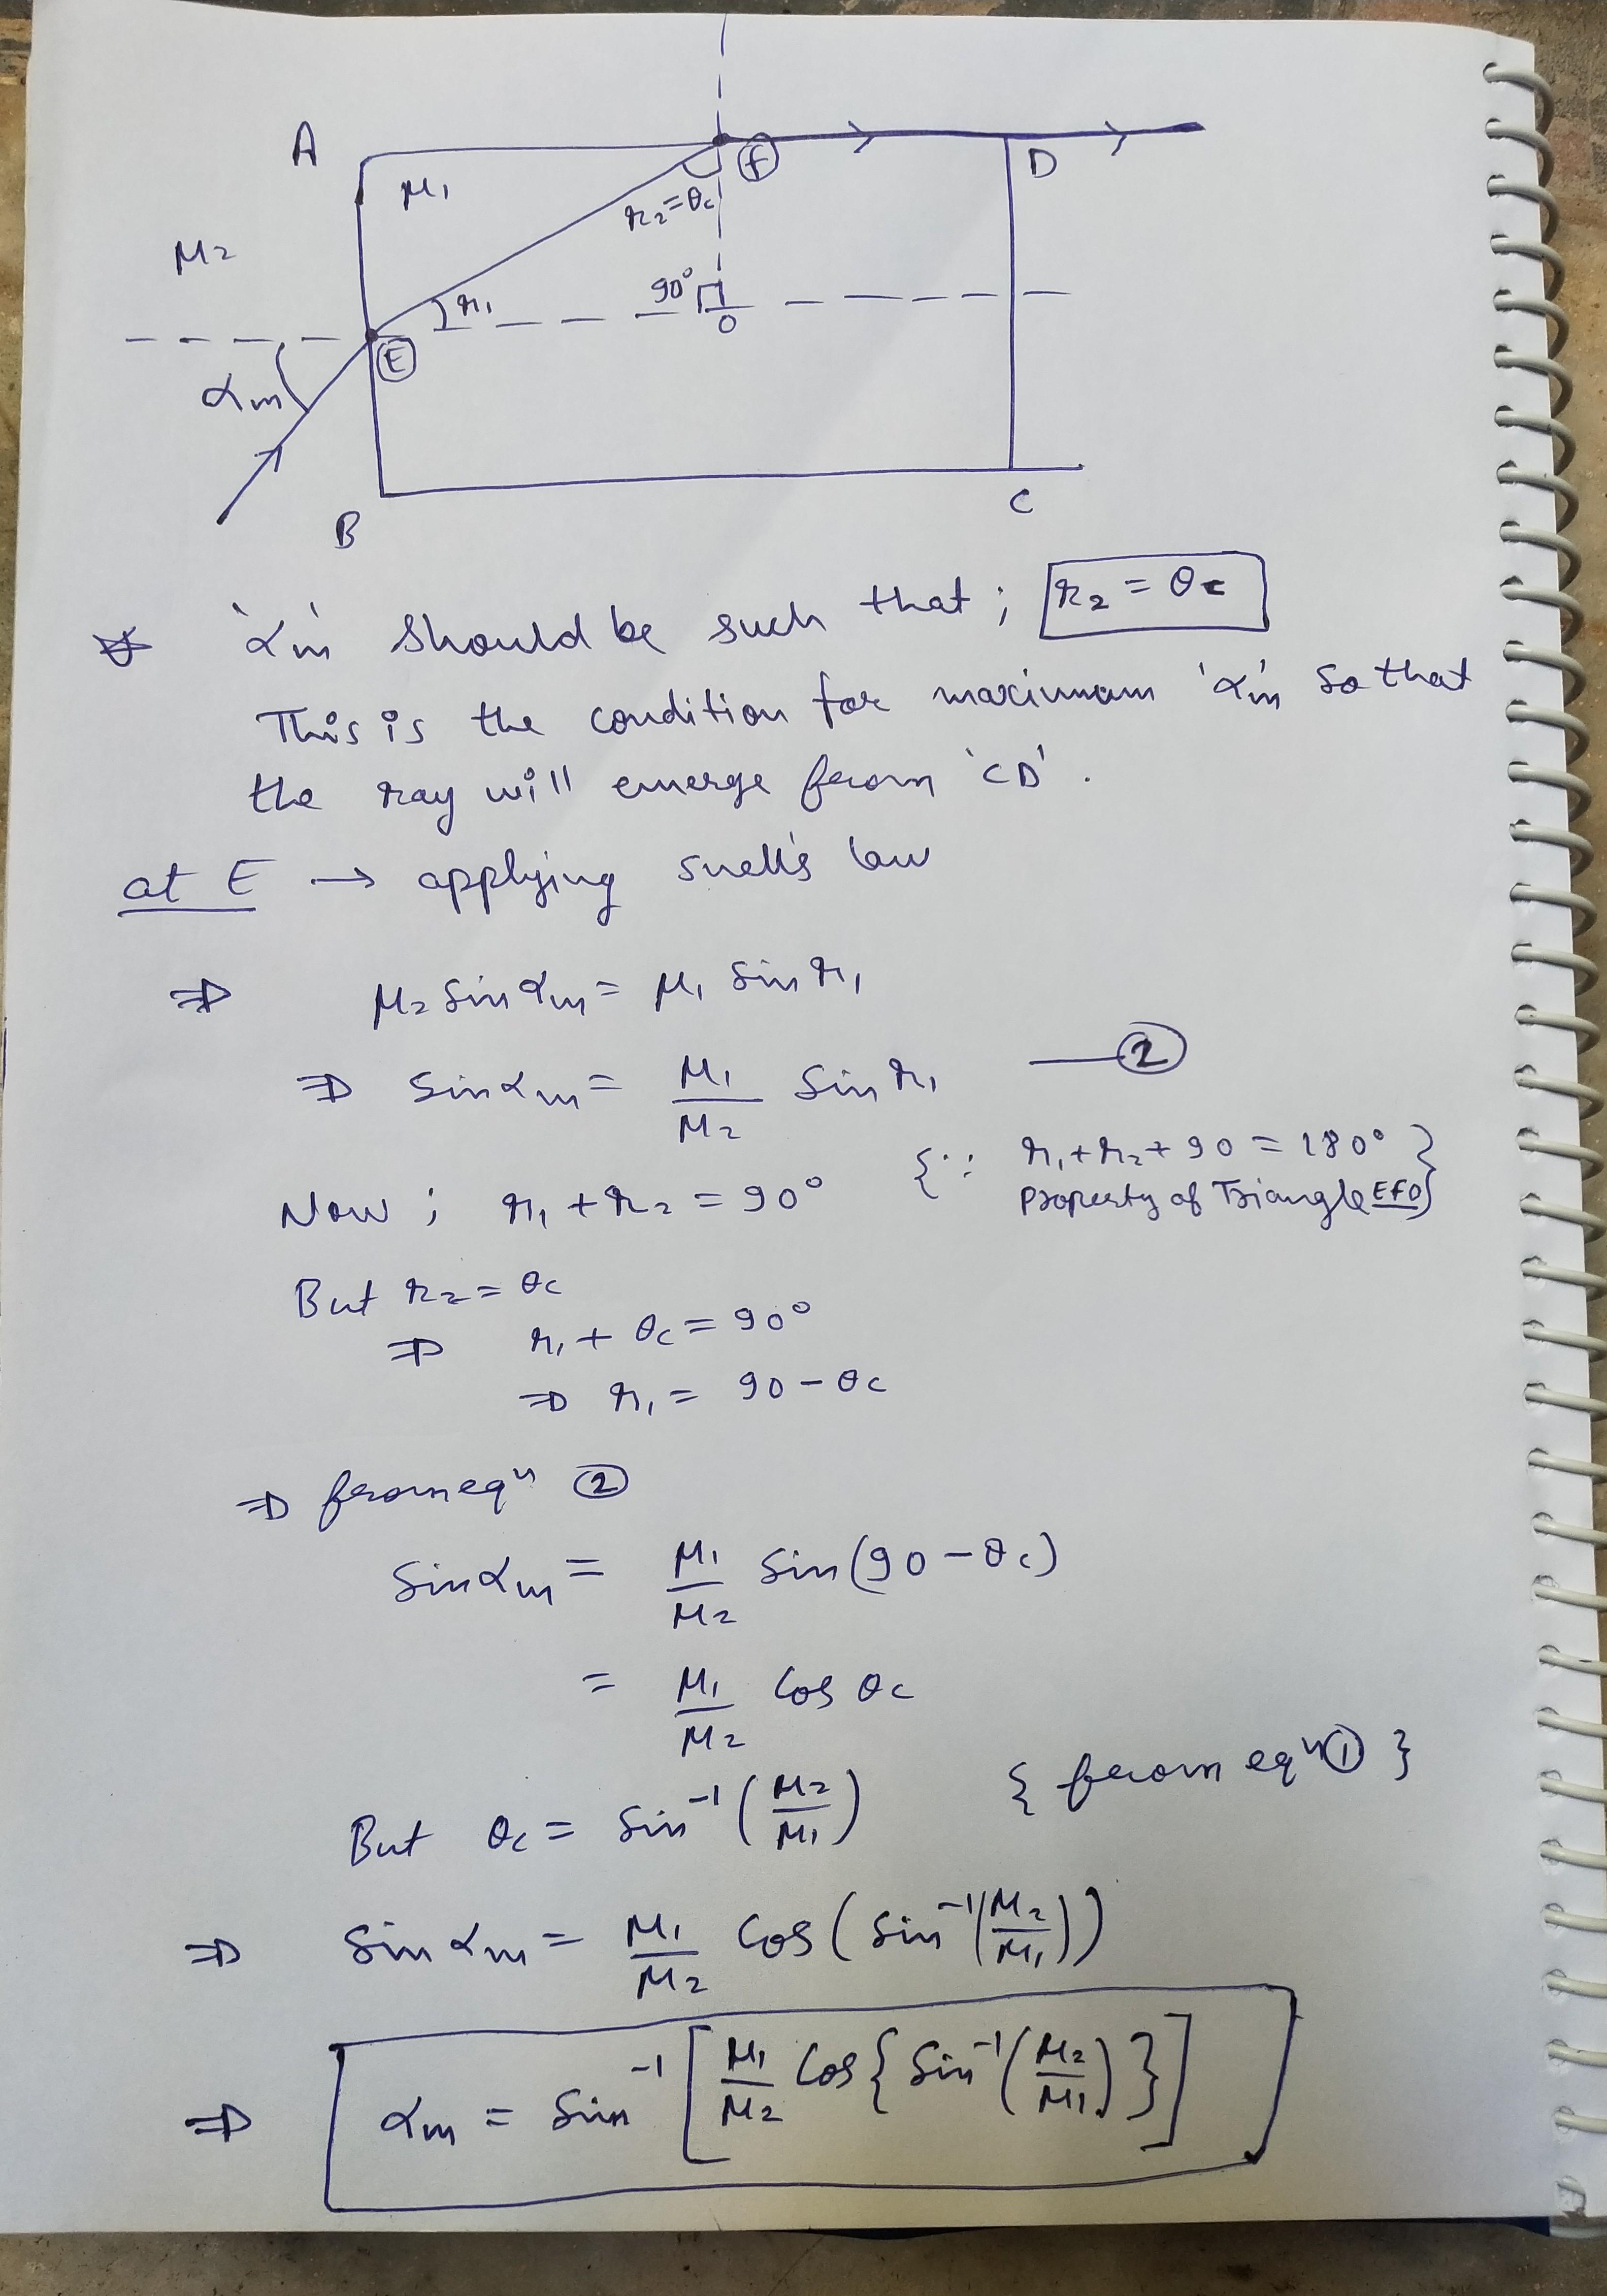 A
μ1
F
D
r2=θc
μ2
90°
r1
O
E
αm
B
C
'αm' should be such that ; r2 = θc
This is the condition for maximum 'αm' so that
the ray will emerge from 'CD'.
at E → applying snell's law
⇒ μ2 sin αm = μ1 sin r1
⇒ sin αm = μ1/μ2 sin r1 —②
Now ; r1 + r2 = 90° {∵ r1+r2+90 = 180°
Property of Triangle EFO}
But r2 = θc
⇒ r1 + θc = 90°
⇒ r1 = 90 - θc
⇒ from eqⁿ ②
sin αm = μ1/μ2 sin(90 - θc)
= μ1/μ2 cos θc
But θc = sin⁻¹(μ2/μ1) {from eqⁿ ①}
⇒ sin αm = μ1/μ2 cos(sin⁻¹(μ2/μ1))
⇒ αm = sin⁻¹[μ1/μ2 cos{sin⁻¹(μ2/μ1)}]